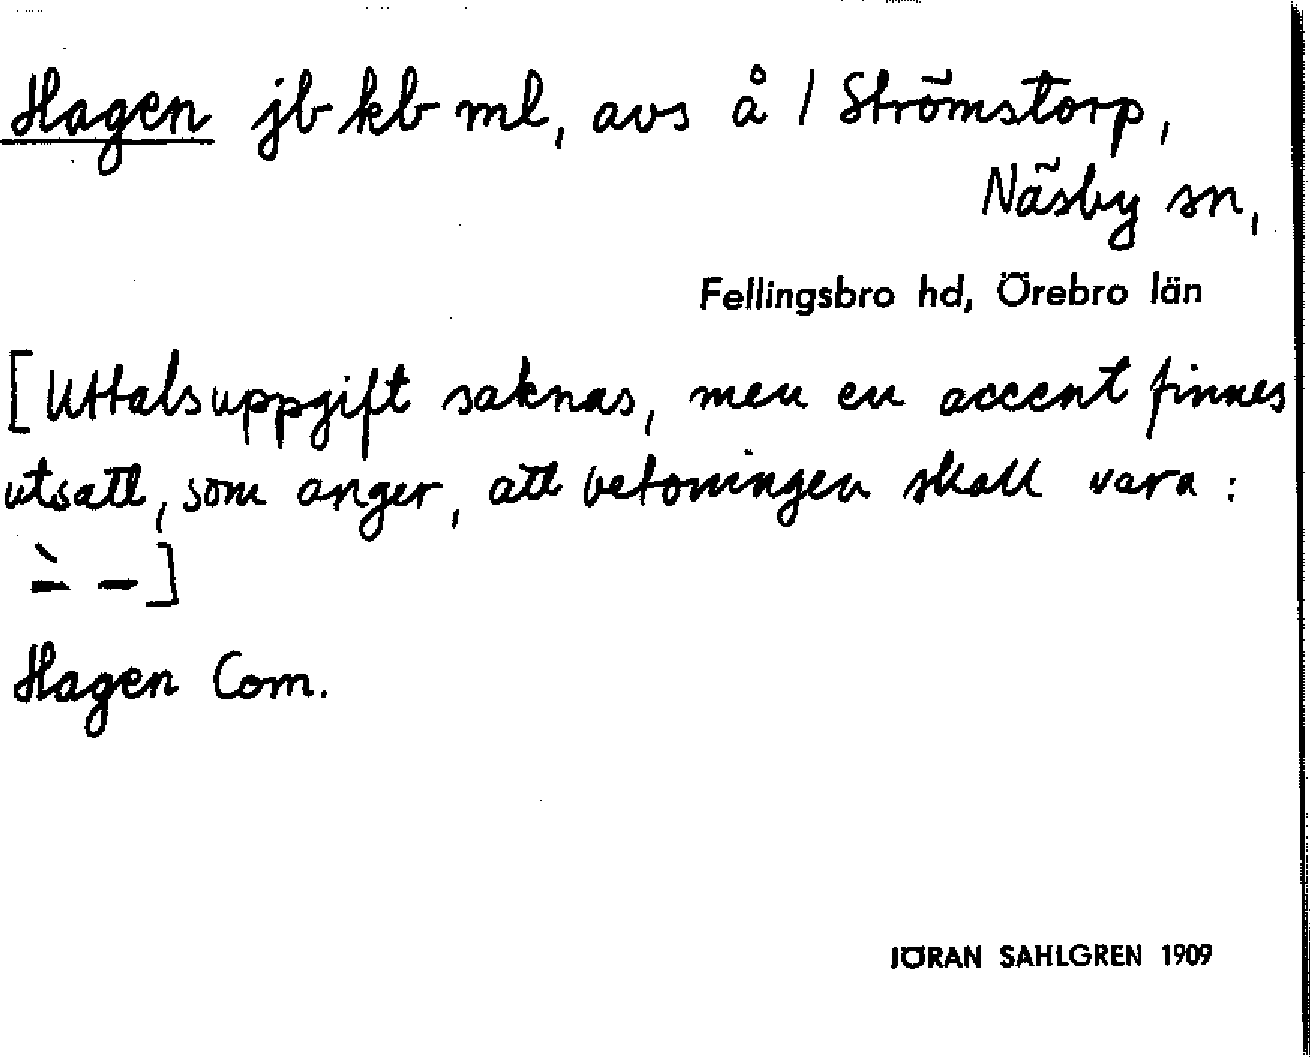 Hagen jb kb ml, avs å / Strömstorp,
Näsby sn,
Fellingsbro hd, Örebro län
[Uttalsuppgift saknas, men en accent finnes
utsatt, som anger, att betoningen skall vara :
̀– –]
Hagen Com.
JÖRAN SAHLGREN 1909